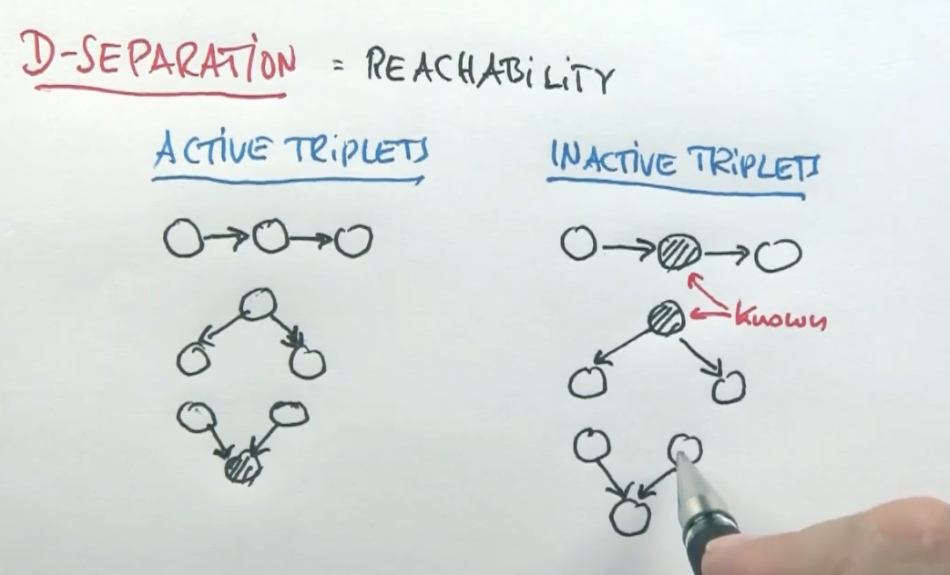 D-SEPARATION = REACHABILITY
ACTIVE TRIPLETS
INACTIVE TRIPLETS
Known